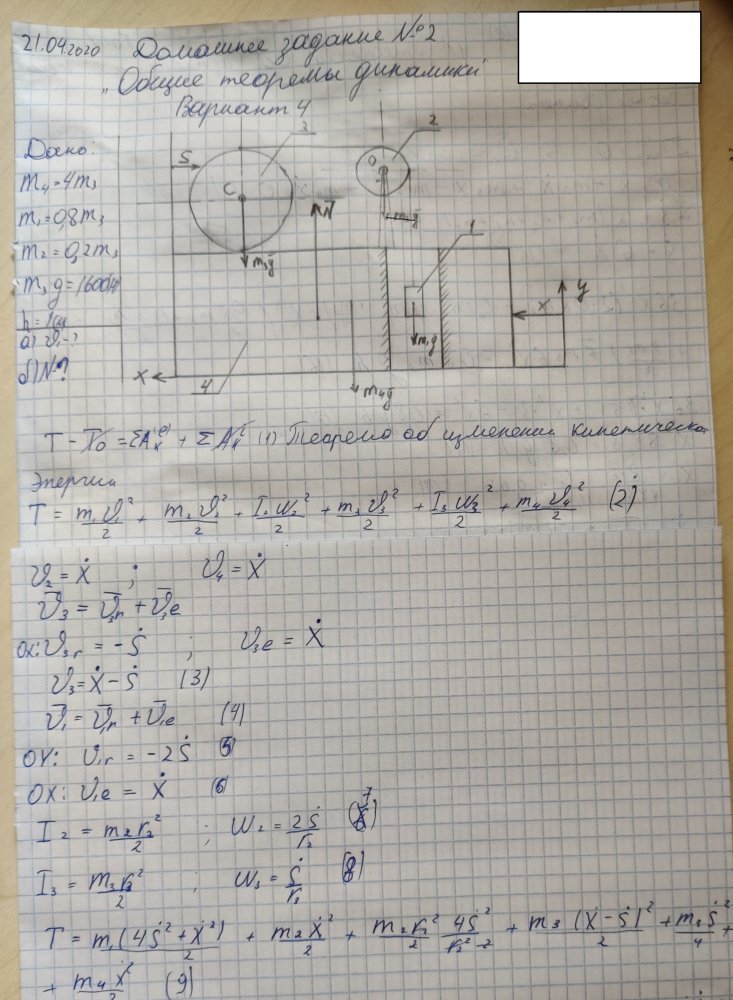 21.04.2020 Домашнее задание №2
„Общие теоремы динамики"
Вариант 4
3
2
Дано:
m₄=4m₃
m₁=0,8m₃
m₂=0,2m₃
m₃g=1600
h=1см
а) v₁-?
б) N-?
S
C
O
N̄
1
m₃ḡ
m₁ḡ
m₄ḡ
4
X
X
y
T - T₀ = ΣAₖ⁽ᵉ⁾ + ΣAₖⁱ (1) Теорема об изменении кинетическо
Энергии
T = m₁v₁²/2 + m₂v₂²/2 + I₂ω₂²/2 + m₃v₃²/2 + I₃ω₃²/2 + m₄v₄²/2 (2)
v₂ = Ẋ ; v₄ = Ẋ
v̄₃ = v̄₃r + v̄₃e
OX: v₃r = -Ṡ ; v₃e = Ẋ
v₃ = Ẋ - Ṡ (3)
v̄₁ = v̄₁r + v̄₁e (4)
OY: v₁r = -2Ṡ (5)
OX: v₁e = Ẋ (6)
I₂ = m₂r₂²/2 ; ω₂ = 2Ṡ/r₂ (7)
I₃ = m₃r₃²/2 ; ω₃ = Ṡ/r₃ (8)
T = m₁(4Ṡ² + Ẋ²)/2 + m₂Ẋ²/2 + m₂r₂²/2 · 4Ṡ²/r₂²·2 + m₃(Ẋ - Ṡ)²/2 + m₃Ṡ²/4 +
+ m₄Ẋ²/2 (9)